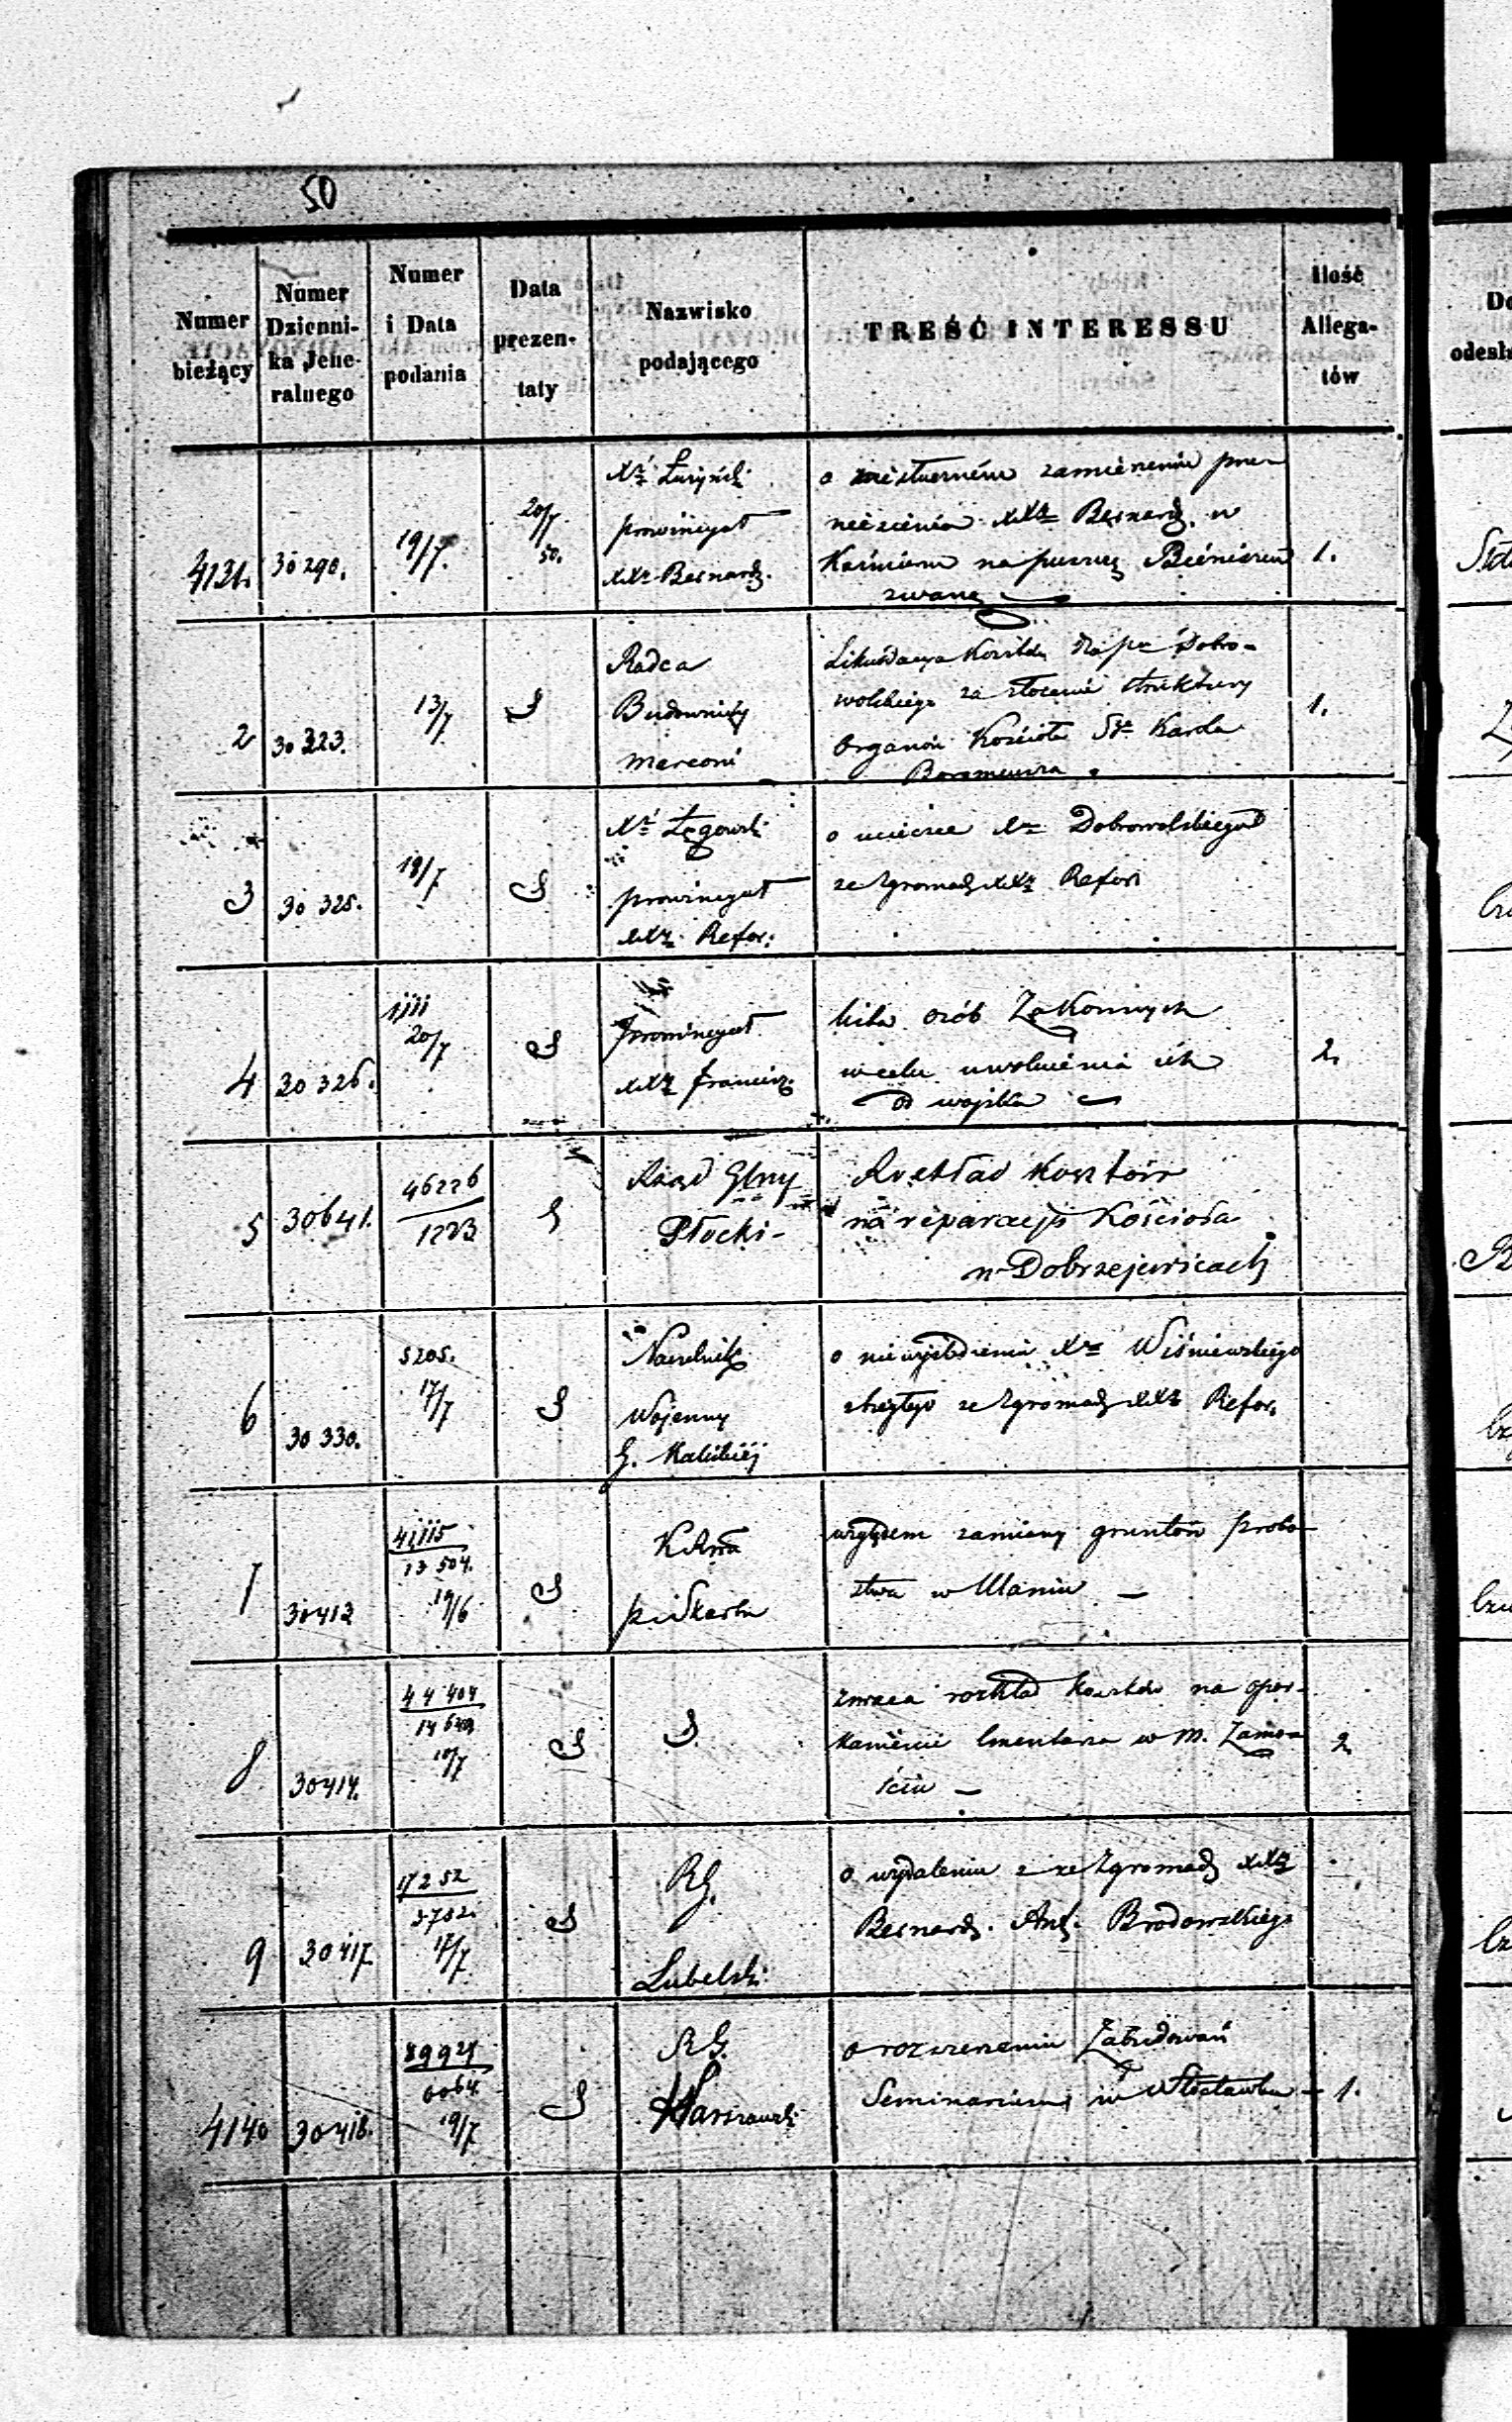 50
Numer bieżący
Numer Dzienni-ka Jene-ralnego
Numer i Data podania
Data prezen-taty
Nazwisko podającego
TREŚĆ INTERESSU
Ilość Allega-tów
4131. 30290. 19/7. 20/7 50. 1.
prowincyał
XXr Bernardz.
o zamierzeniu prze-
niesienia XXr Bernardz. w
na puszczę
zwaną
2 30323. 13/7 1.
Radca
Budowniczy
Marconi
Likwidacya kosztów Dobro-
wolskiego za złocenie struktury
Organów Kościoła Sgo Karola
Boromeusza
3 30325. 18/7
Xr Łęgowski
prowincyał
XXr Refor:
o ucieczce Xa Dobrowolskiego
ze Zgromadz XXr Refor
4 30326. 20/7 2.
prowincyał
XXr Francisz.
lista osób Zakonnych
w celu uwolnienia ich
od wojska
5 30641. 46226 1223
Rząd Gbny
Płocki-
Rozkład kosztów
na reparacyą Kościoła
w Dobrzejewicach
6 30330. 5205. 17/7
Naczelnik
Wojenny
G. Kaliskiej
o Xa Wiśniewskiego
zbiegłego ze Zgromadz XXr Refor.
7 30413 13504. 19/6
Skarbu
względem zamiany gruntów probo-
stwa w
8 30414. 44404 10/7 2
zwraca rozkład kosztów na opar-
kanienie Cmentarza w M. Zamo-
ściu
9 30417 17252 3702. 17/7
RG.
Lubelski
o wydaleniu ze Zgromadz XXr
Bernardz. Ant. Brodowskiego
4140 30418. 89924 6064. 19/7 1.
RG.
Warszawski
o rozszerzeniu Zabudowań
Seminarium w Włocławku